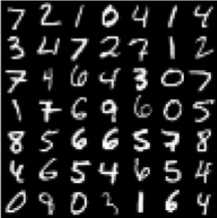 7 2 1 0 4 1 4
3 4 7 2 7 1 2
7 4 6 4 3 0 7
1 7 6 9 6 0 5
8 5 6 6 5 7 8
4 6 5 4 6 5 4
0 9 0 3 1 6 4